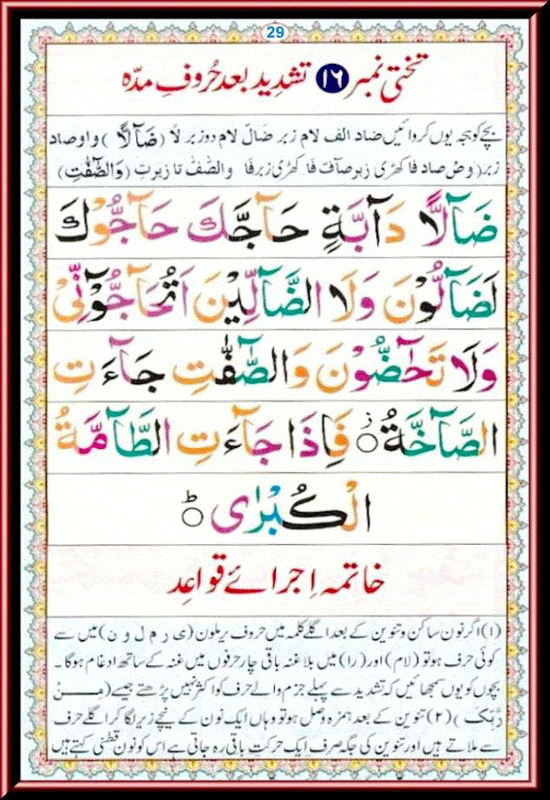 29
تختی نمبر ۱۶ تشدید بعد حُروفِ مدّہ
بچے کو ہجے یوں کروائیں ضاد الف لام زبر ضَالّ لام دو زبر لاً (ضَآلًّا) واو صاد
زبر (وَصْ صاد فا کھڑی زبر صآفّ فا کھڑی زبر فا والصّٰفّٰ تا زیر تِ (وَالصّٰٓفّٰتِ)
ضَآلًّا دَآبَّةٍ حَآجَّكَ حَآجُّوْكَ
لَضَآلُّوْنَ وَلَا الضَّآلِّيْنَ اَتُحَآجُّوْٓنِّيْ
وَلَا تَحٰٓضُّوْنَ وَالصّٰٓفّٰتِ جَآءَتِ
الصَّآخَّةُ ز فَاِذَا جَآءَتِ الطَّآمَّةُ
الْكُبْرٰى ط
خاتمہ اِجرائے قواعِد
(۱) اگر نون ساکن و تنوین کے بعد اگلے کلمہ میں حروف یرملون (ی ر م ل و ن) میں سے
کوئی حرف ہو تو (لام) اور (را) میں بلا غنہ باقی چار حرفوں میں غنہ کے ساتھ ادغام ہوگا۔
بچوں کو یوں سمجھائیں کہ تشدید سے پہلے جزم والے حرف کو اکثر نہیں پڑھتے جیسے (مِنْ
رَّبِّكَ) (۲) تنوین کے بعد ہمزہ وصل ہو تو وہاں ایک نون کے نیچے زیر لگا کر اگلے حرف
سے ملاتے ہیں اور تنوین کی جگہ صرف ایک حرکت باقی رہ جاتی ہے اس کو نون قطنی کہتے ہیں